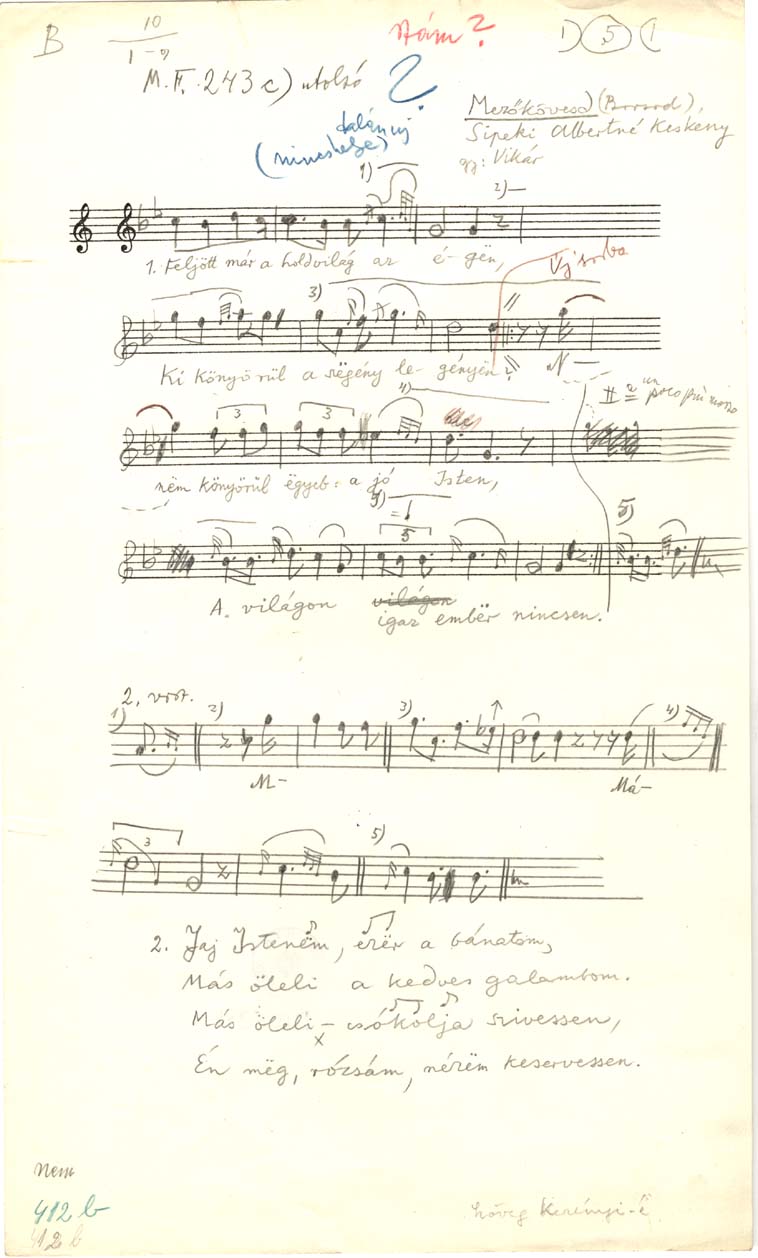 B 10 szám? 1) (5) (1
1-9
M.F. 243 c) utolsó ?
Mezőkövesd (Borsod),
talán új
Sipeki Albertné Keskeny
(nincs bef.)
gy: Vikár
1) 2)
1. Feljött már a holdvilág az é-gën,
Új sorba
3)
Ki könyörül a szëgény le-gényën? N-
4) un poco più mosso
3 3
nëm könyörül ëgyeb: a jó Isten,
5 5)
A világon világon
igaz embër nincsen.
2. vrsz.
1) 2) 3) 4)
M- Má-
3 5)
2. Jaj Istenëm, ezër a bánatom,
Más öleli a kedves galambom.
Más öleli – csókolja szivessen,
x
Én mëg, rózsám, nézëm keservessen.
Nem
412 b
412 b
szöveg Kerényi-é